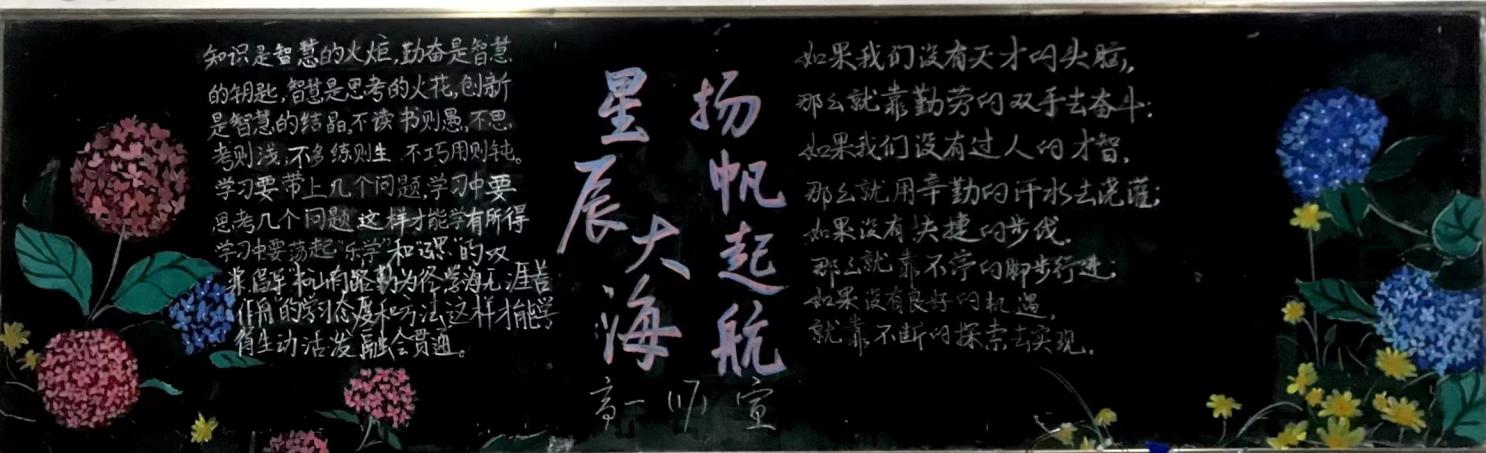 知识是智慧的火炬,勤奋是智慧
的钥匙,智慧是思考的火花,创新
是智慧的结晶,不读书则愚,不思
考则浅,不多练则生 不巧用则钝。
学习要带上几个问题,学习中要
思考几个问题 这样才能学有所得
学习中要荡起"乐学"和"深思"的双
桨 倡导"书山有路勤为径,学海无涯苦
作舟"的学习态度和方法 这样才能学
得生动活泼 融会贯通。
星辰大海
扬帆起航
高一 宣
如果我们没有天才的头脑,
那么就靠勤劳的双手去奋斗;
如果我们没有过人的才智,
那么就用辛勤的汗水去浇灌;
如果没有快捷的步伐,
那么就靠不停的脚步行进;
如果没有良好的机遇,
就靠不断的探索去实现.